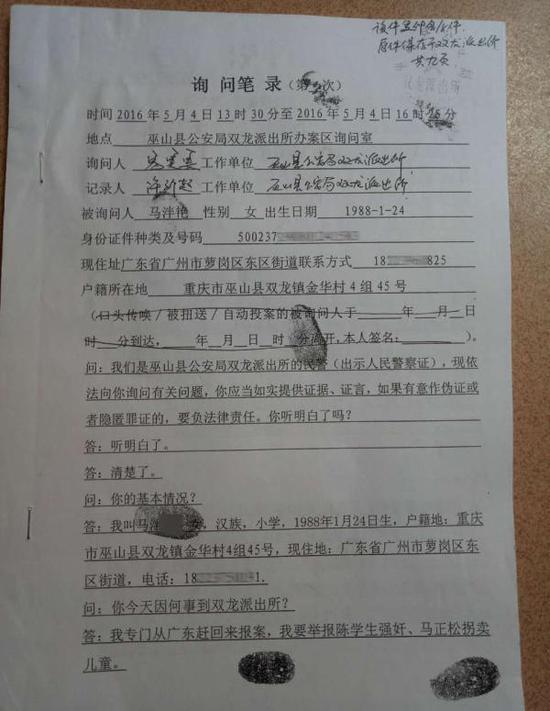 该件系复印件
原件保存于双龙派出所
共九页
询 问 笔 录（第 次）
时间 2016 年 5 月 4 日 13 时 30 分至 2016 年 5 月 4 日 16 时 分
地点 巫山县公安局双龙派出所办案区询问室
询问人 工作单位 巫山县公安局双龙派出所
记录人 工作单位 巫山县公安局双龙派出所
被询问人 马泮艳 性别 女 出生日期 1988-1-24
身份证件种类及号码 500237
现住址广东省广州市萝岗区东区街道联系方式 18 825
户籍所在地 重庆市巫山县双龙镇金华村 4 组 45 号
（口头传唤/被扭送/自动投案的被询问人于 年 月 日
时 分到达， 年 月 日 时 分离开，本人签名： ）。
问：我们是巫山县公安局双龙派出所的民警（出示人民警察证），现依
法向你询问有关问题，你应当如实提供证据、证言，如果有意作伪证或
者隐匿罪证的，要负法律责任。你听明白了吗？
答：听明白了。
答：清楚了。
问：你的基本情况？
答：我叫马泮 女，汉族，小学，1988年1月24日生，户籍地：重庆
市巫山县双龙镇金华村4组45号，现住地：广东省广州市萝岗区东
区街道，电话：18 1.
问：你今天因何事到双龙派出所？
答：我专门从广东赶回来报案，我要举报陈学生强奸、马正松拐卖
儿童。